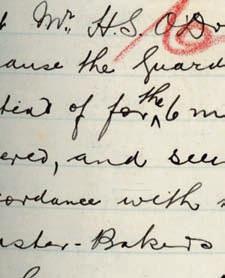 Mr. H.S. O'D
ause the Guard
of for the 6 m
ered, and seen
ordance with
aster-Bakers